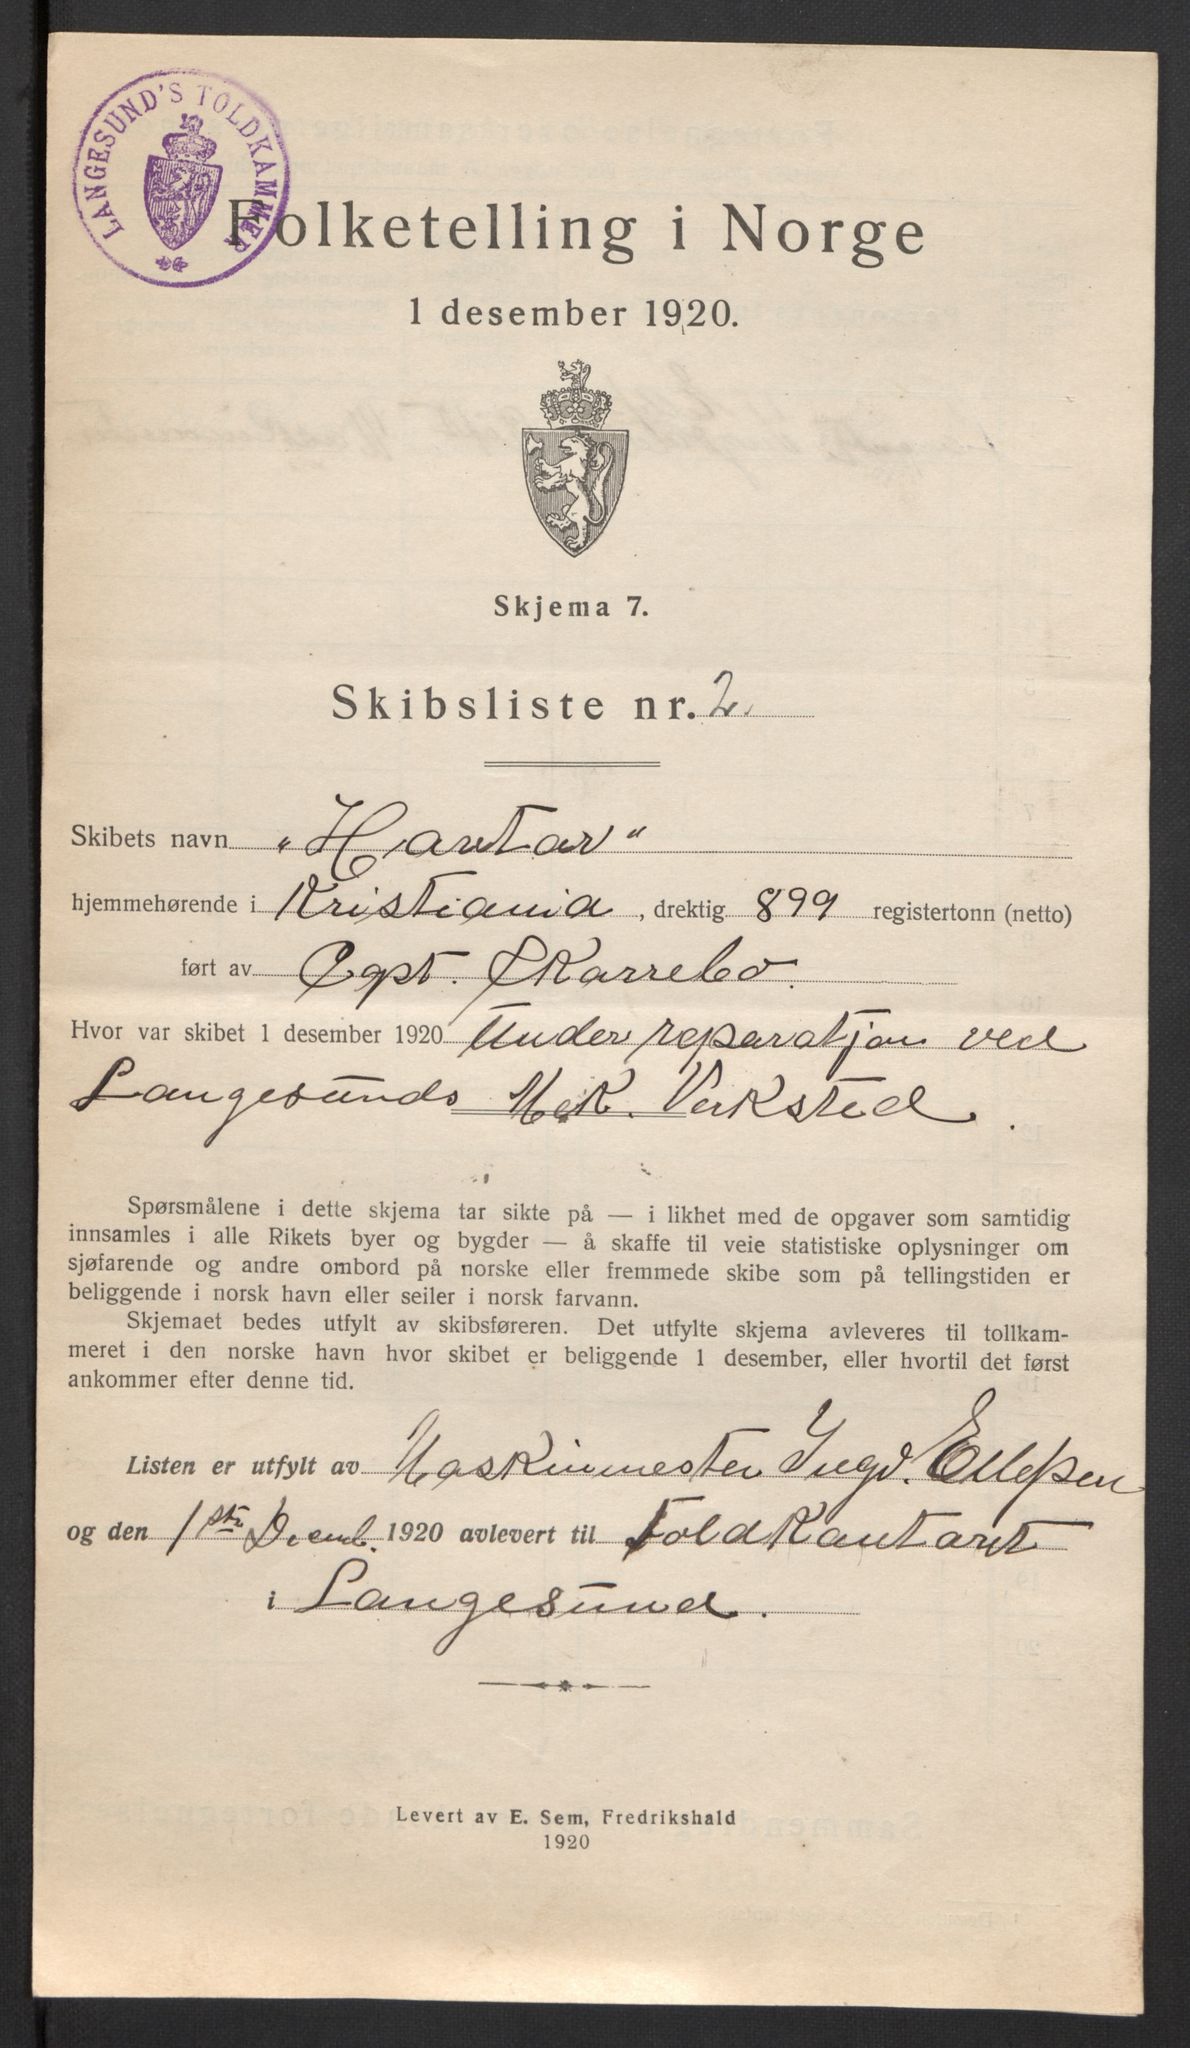 LANGESUND'S TOLDKAMMER
Folketelling i Norge
1 desember 1920.
Skjema 7.
Skibsliste nr. 2.
Skibets navn „Havtar"
hjemmehørende i Kristiania, drektig 899 registertonn (netto)
ført av Capt. Skarrebo.
Hvor var skibet 1 desember 1920 Under reparatjon ved
Langesunds Mek. Verksted.
Spørsmålene i dette skjema tar sikte på — i likhet med de opgaver som samtidig
innsamles i alle Rikets byer og bygder — å skaffe til veie statistiske oplysninger om
sjøfarende og andre ombord på norske eller fremmede skibe som på tellingstiden er
beliggende i norsk havn eller seiler i norsk farvann.
Skjemaet bedes utfylt av skibsføreren. Det utfylte skjema avleveres til tollkam-
meret i den norske havn hvor skibet er beliggende 1 desember, eller hvortil det først
ankommer efter denne tid.
Listen er utfylt av Maskinmester Ingv. Ellefsen
og den 1ste Decemb. 1920 avlevert til Toldkantoret
i Langesund.
Levert av E. Sem, Fredrikshald
1920